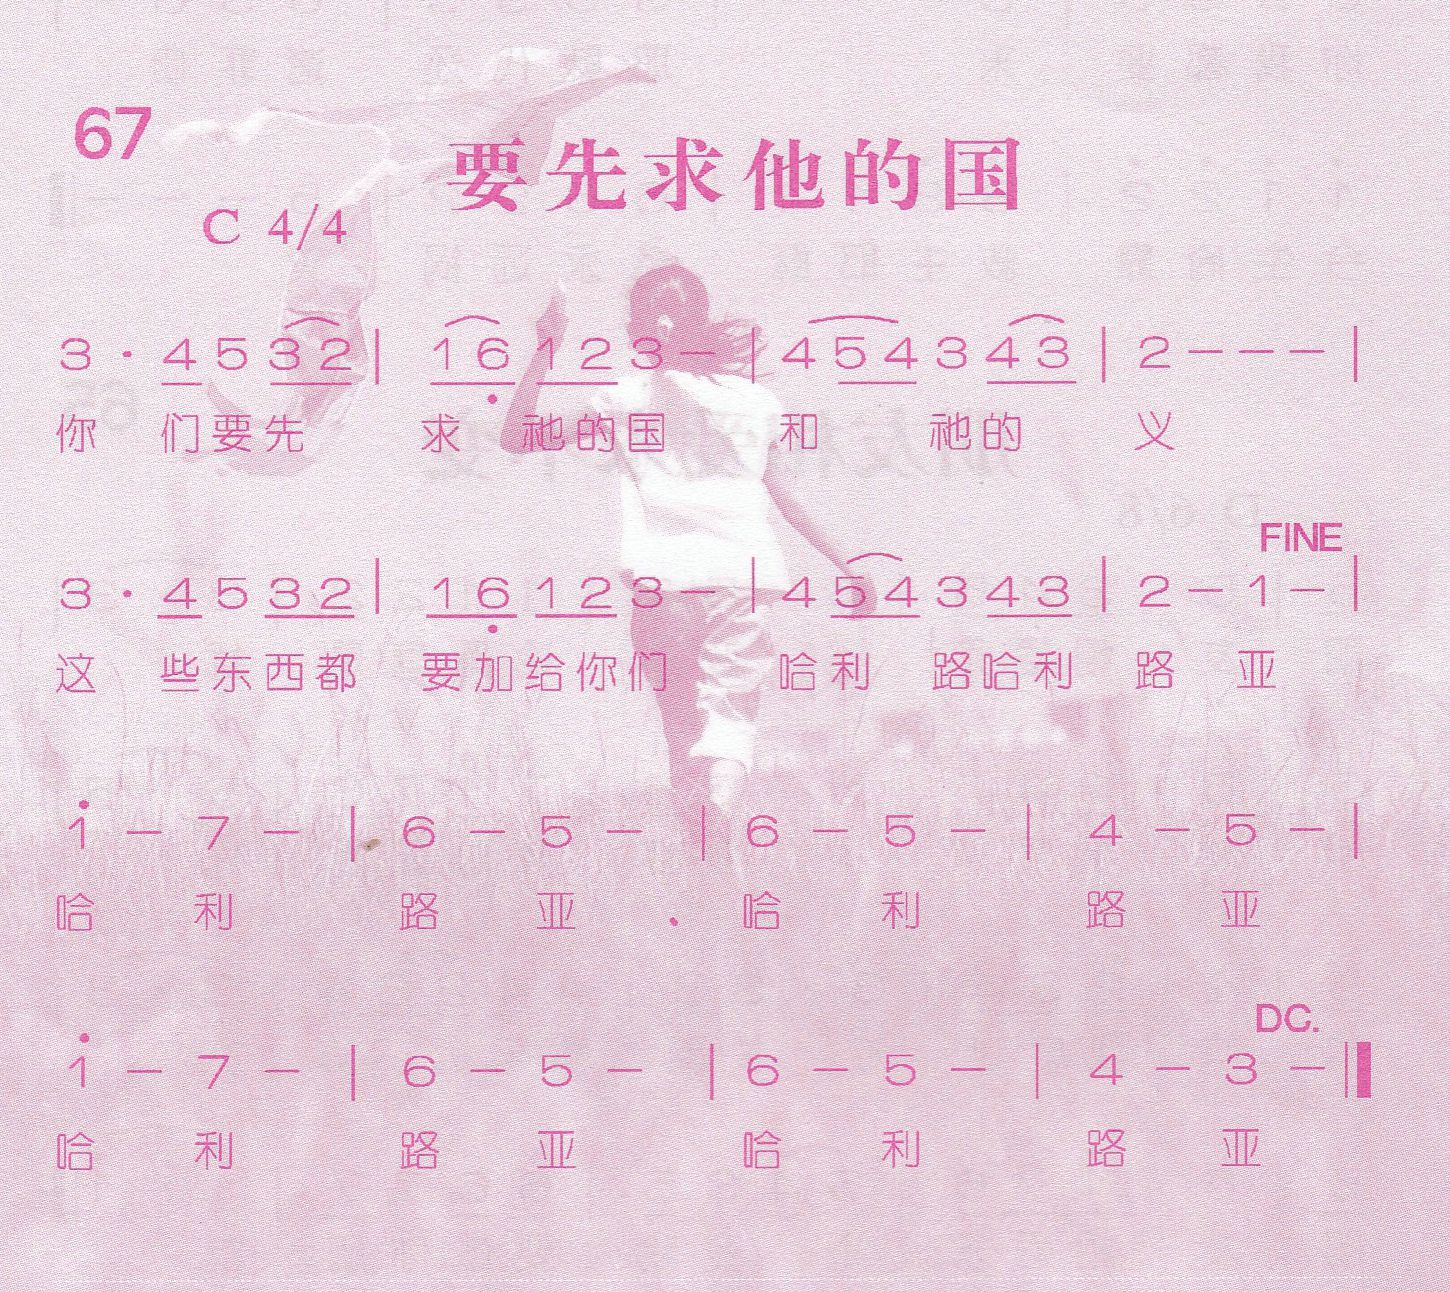 67
要先求他的国
C 4/4
3 · 4 5 3 2 | 1 6 1 2 3 – | 4 5 4 3 4 3 | 2 – – – |
你 们要先 求 祂的国 和 祂的 义
FINE
3 · 4 5 3 2 | 1 6 1 2 3 – | 4 5 4 3 4 3 | 2 – 1 – |
这 些东西都 要加给你们 哈利 路哈利 路 亚
1 – 7 – | 6 – 5 – | 6 – 5 – | 4 – 5 – |
哈 利 路 亚 、 哈 利 路 亚
DC.
1 – 7 – | 6 – 5 – | 6 – 5 – | 4 – 3 – ‖
哈 利 路 亚 哈 利 路 亚